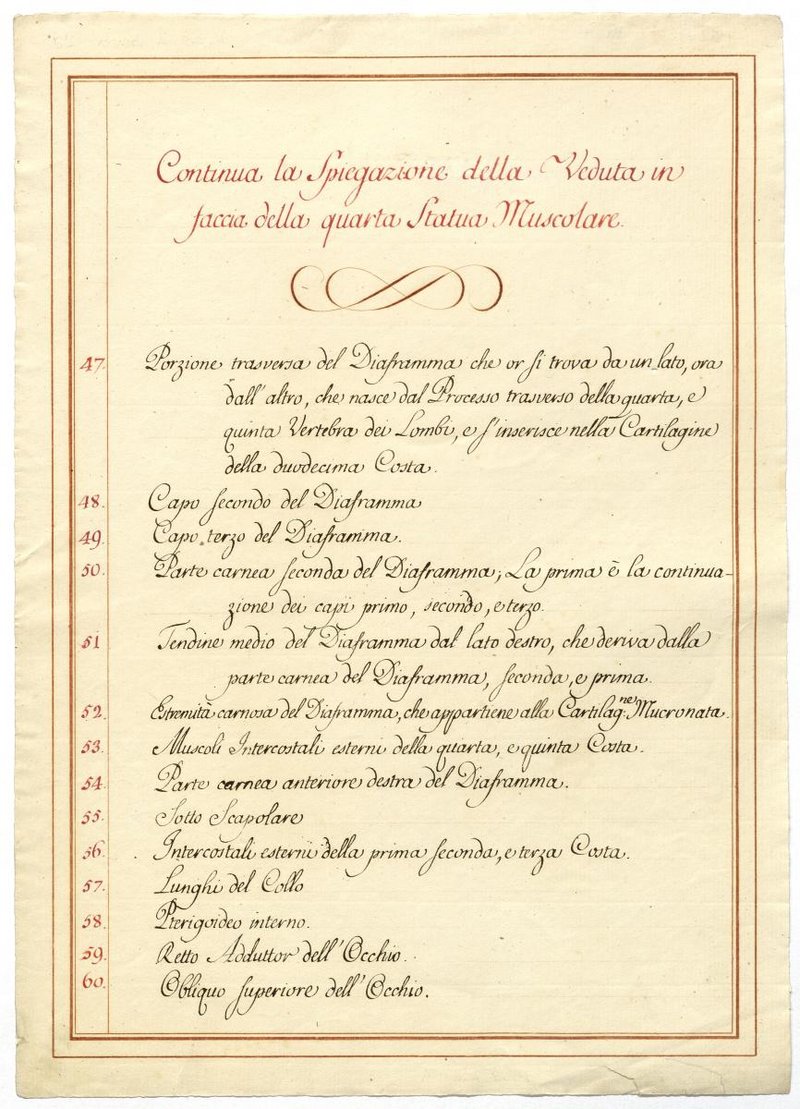 Continua la Spiegazione della Veduta in
faccia della quarta Statua Muscolare.
47. Porzione trasversa del Diaframma che or si trova da un lato, ora
dall'altro, che nasce dal Processo trasverso della quarta, e
quinta Vertebra dei Lombi, e s'inserisce nella Cartilagine
della duodecima Costa.
48. Capo secondo del Diaframma
49. Capo terzo del Diaframma.
50. Parte carnea seconda del Diaframma; La prima è la continua-
zione dei capi primo, secondo, e terzo.
51 Tendine medio del Diaframma dal lato destro, che deriva dalla
parte carnea del Diaframma, seconda, e prima.
52. Estremità carnosa del Diaframma, che appartiene alla Cartilag:ne Mucronata.
53. Muscoli Intercostali esterni della quarta, e quinta Costa.
54. Parte carnea anteriore destra del Diaframma.
55. Sotto Scapolare
56. Intercostali esterni della prima seconda, e terza Costa.
57. Lunghi del Collo
58. Pterigoideo interno.
59. Retto Adduttor dell'Occhio.
60. Obliquo superiore dell'Occhio.